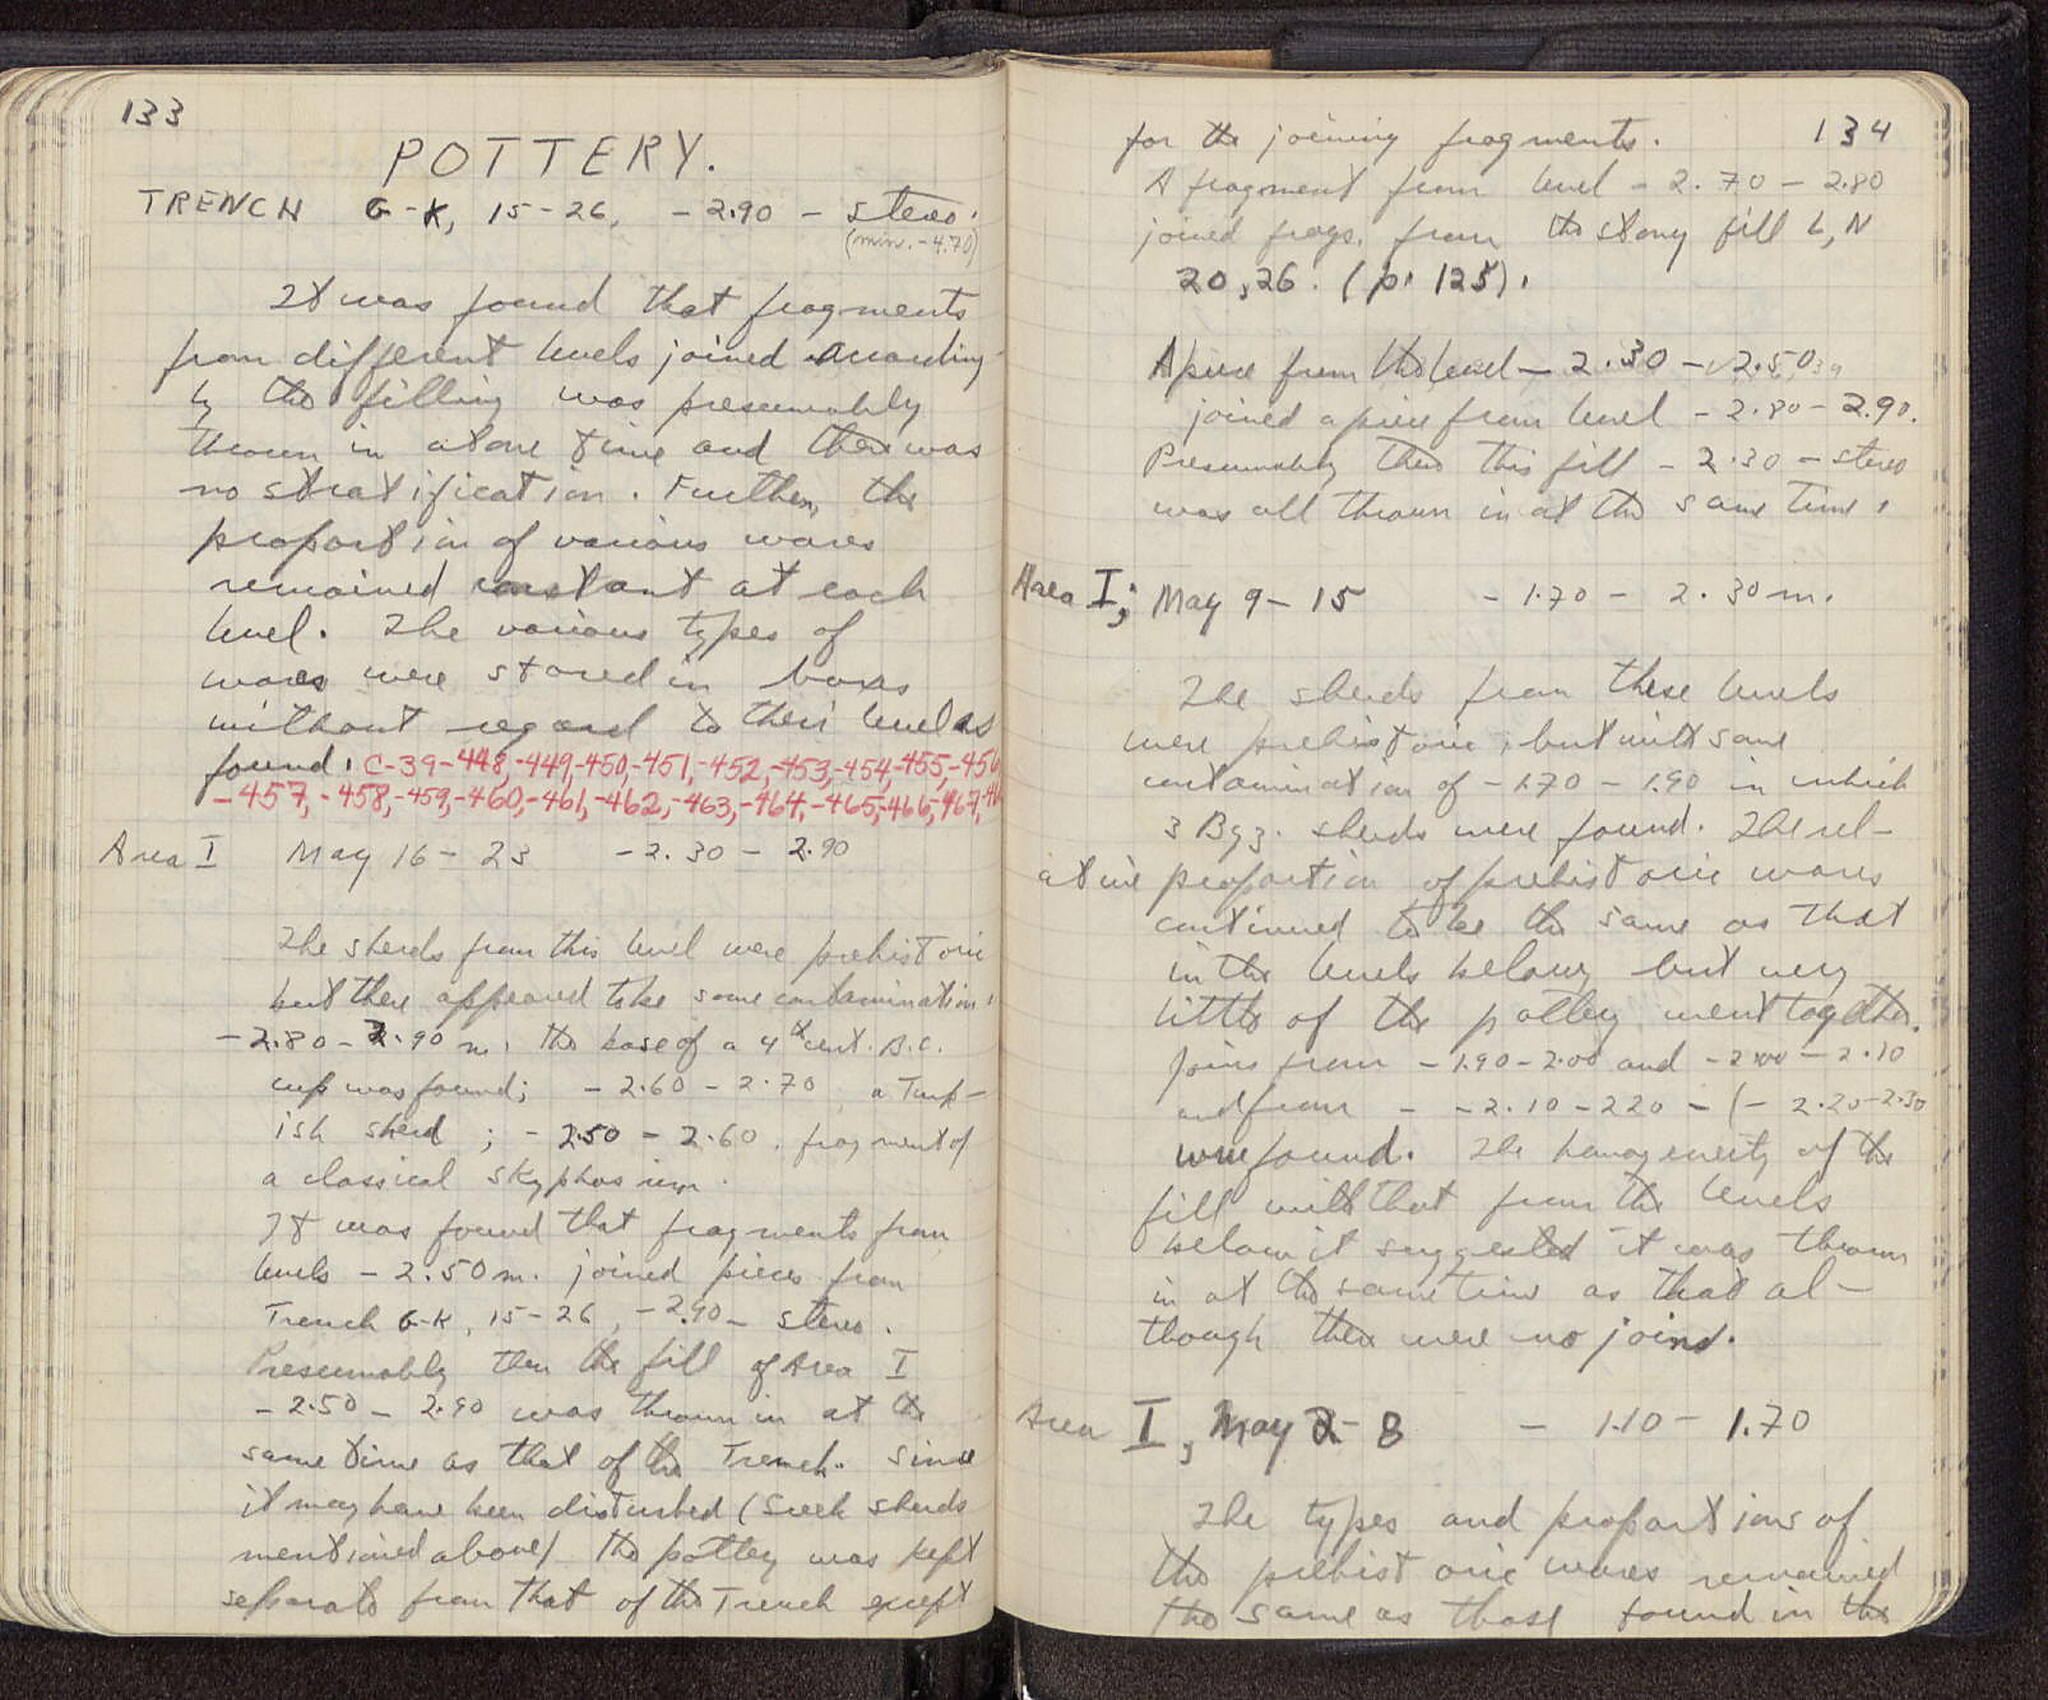 133
POTTERY.
TRENCH G-K, 15-26, -2.90 - stereo.
(min. -4.70)
It was found that fragments
from different levels joined according-
ly the filling was presumably
thrown in at one time and there was
no stratification. Further, the
proportion of various wares
remained constant at each
level. The various types of
wares were stored in boxes
without regard to their level as
found. C-39-448,-449,-450,-451,-452,-453,-454,-455,-456
-457,-458,-459,-460,-461,-462,-463,-464,-465,-466,-467,
Area I May 16 - 23 -2.30 - 2.90
The sherds from this level were prehistoric
but there appeared to be some contamination.
-2.80 - 2.90 m. the base of a 4th cent. B.C.
cup was found; -2.60 - 2.70, a Turk-
ish sherd; -2.50 - 2.60. fragment of
a classical skyphos rim.
It was found that fragments from
levels -2.50 m. joined pieces from
Trench G-K, 15-26, -2.90 - stereo.
Presumably then the fill of Area I
-2.50 - 2.90 was thrown in at the
same time as that of the Trench. Since
it may have been disturbed (Greek sherds
mentioned above) the pottey was kept
separate from that of the Trench except
134
for the joining fragments.
A fragment from level -2.70 - 2.80
joined frags. from the stony fill L, N
20, 26. (p. 125).
A piece from the level - 2.30 - 2.50
joined a piece from level -2.80 - 2.90.
Presumably then this fill -2.30 - stereo
was all thrown in at the same time.
Area I; May 9-15 -1.70 - 2.30 m.
The sherds from these levels
were prehistoric, but with some
contamination of -1.70 - 1.90 in which
3 Byz. sherds were found. The rel-
ative proportion of prehistoric wares
continued to be the same as that
in the levels below, but very
little of the pottey went together.
Joins from -1.90-2.00 and -2.00 - 2.10
and from - -2.10 - 2.20 - (- 2.20-2.30
were found. The homogeneity of the
fill with that from the levels
below it suggested it was thrown
in at the same time as that al-
though there were no joins.
Area I, May 2-8 - 1.10 - 1.70
The types and proportions of
the prehistoric wares remained
the same as those found in the